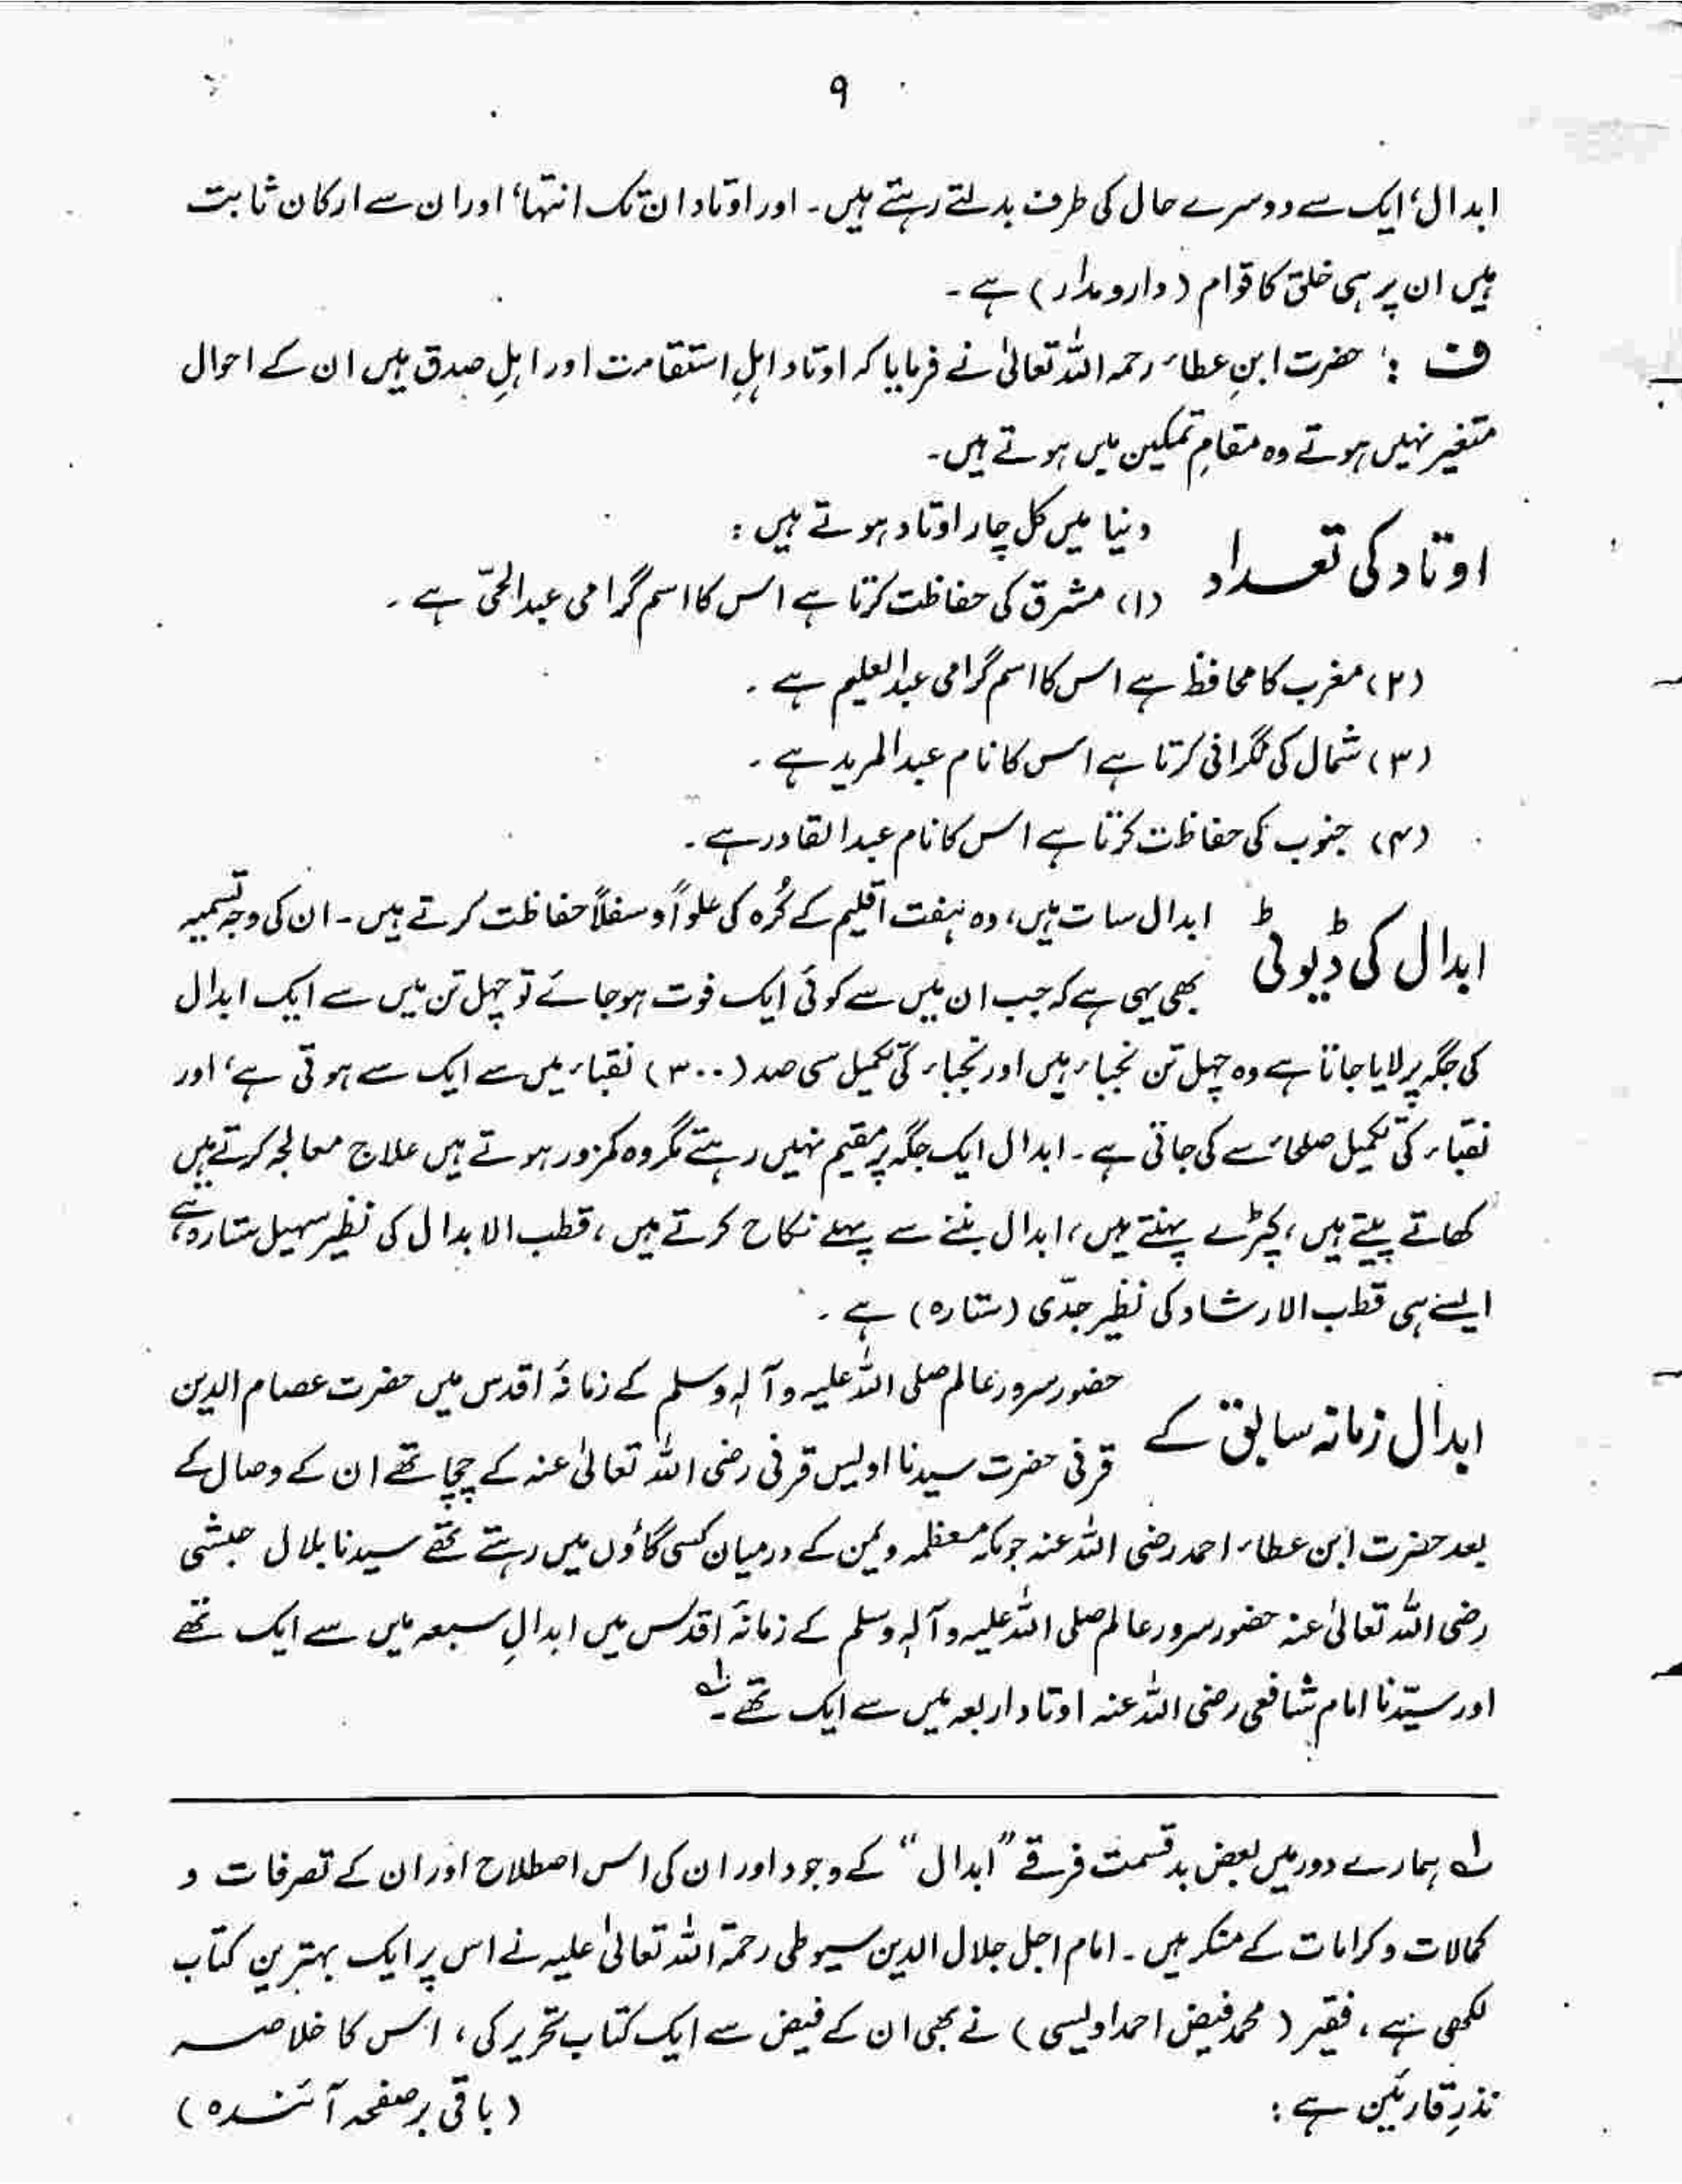 ۹
ابدال، ایک سے دوسرے حال کی طرف بدلتے رہتے ہیں۔ اور اوتاد ان تک انتہا، اور ان سے ارکان ثابت
ہیں ان پر ہی خلق کا قوام (دارومدار) ہے۔
ف : حضرت ابنِ عطاء رحمہ اللہ تعالیٰ نے فرمایا کہ اوتاد اہلِ استقامت اور اہلِ صدق ہیں ان کے احوال
متغیر نہیں ہوتے وہ مقامِ تمکین میں ہوتے ہیں۔
اوتاد کی تعداد
دنیا میں کل چار اوتاد ہوتے ہیں :
(۱) مشرق کی حفاظت کرتا ہے اس کا اسم گرامی عبدالحیّ ہے ۔
(۲) مغرب کا محافظ ہے اس کا اسم گرامی عبدالعلیم ہے ۔
(۳) شمال کی نگرانی کرتا ہے اس کا نام عبدالمرید ہے ۔
(۴) جنوب کی حفاظت کرتا ہے اس کا نام عبدالقادر ہے ۔
ابدال کی ڈیوٹی
ابدال سات ہیں، وہ ہفت اقلیم کے کُرہ کی علواً و سفلاً حفاظت کرتے ہیں۔ ان کی وجہ تسمیہ
بھی یہی ہے کہ جب ان میں سے کوئی ایک فوت ہو جائے تو چہل تن میں سے ایک ابدال
کی جگہ پر لایا جاتا ہے وہ چہل تن نجباء ہیں اور نجباء کی تکمیل سی صد (۳۰۰) نقباء میں سے ایک سے ہوتی ہے، اور
نقباء کی تکمیل صلحاء سے کی جاتی ہے۔ ابدال ایک جگہ پر مقیم نہیں رہتے مگر وہ کمزور ہوتے ہیں علاج معالجہ کرتے ہیں
کھاتے پیتے ہیں، کپڑے پہنتے ہیں، ابدال بننے سے پہلے نکاح کرتے ہیں، قطب الابدال کی نظیر سہیل ستارہ ہے،
ایسے ہی قطب الارشاد کی نظیر جدّی (ستارہ) ہے ۔
ابدال زمانہ سابق کے
حضور سرور عالم صلی اللہ علیہ وآلہ وسلم کے زمانۂ اقدس میں حضرت عصام الدین
قرنی حضرت سیدنا اویس قرنی رضی اللہ تعالیٰ عنہ کے چچا تھے ان کے وصال کے
بعد حضرت ابن عطاء احمد رضی اللہ عنہ جو مکہ معظمہ و یمن کے درمیان کسی گاؤں میں رہتے تھے سیدنا بلال حبشی
رضی اللہ تعالیٰ عنہ حضور سرور عالم صلی اللہ علیہ وآلہ وسلم کے زمانۂ اقدس میں ابدالِ سبعہ میں سے ایک تھے
اور سیّدنا امام شافعی رضی اللہ عنہ اوتاد اربعہ میں سے ایک تھے۔ ؎۱
؎۱ ہمارے دور میں بعض بدقسمت فرقے "ابدال" کے وجود اور ان کی اس اصطلاح اور ان کے تصرفات و
کمالات و کرامات کے منکر ہیں۔ امام اجل جلال الدین سیوطی رحمۃ اللہ تعالیٰ علیہ نے اس پر ایک بہترین کتاب
لکھی ہے، فقیر (محمد فیض احمد اویسی) نے بھی ان کے فیض سے ایک کتاب تحریر کی، اس کا خلاصہ
نذرِ قارئین ہے : (باقی بر صفحہ آئندہ)